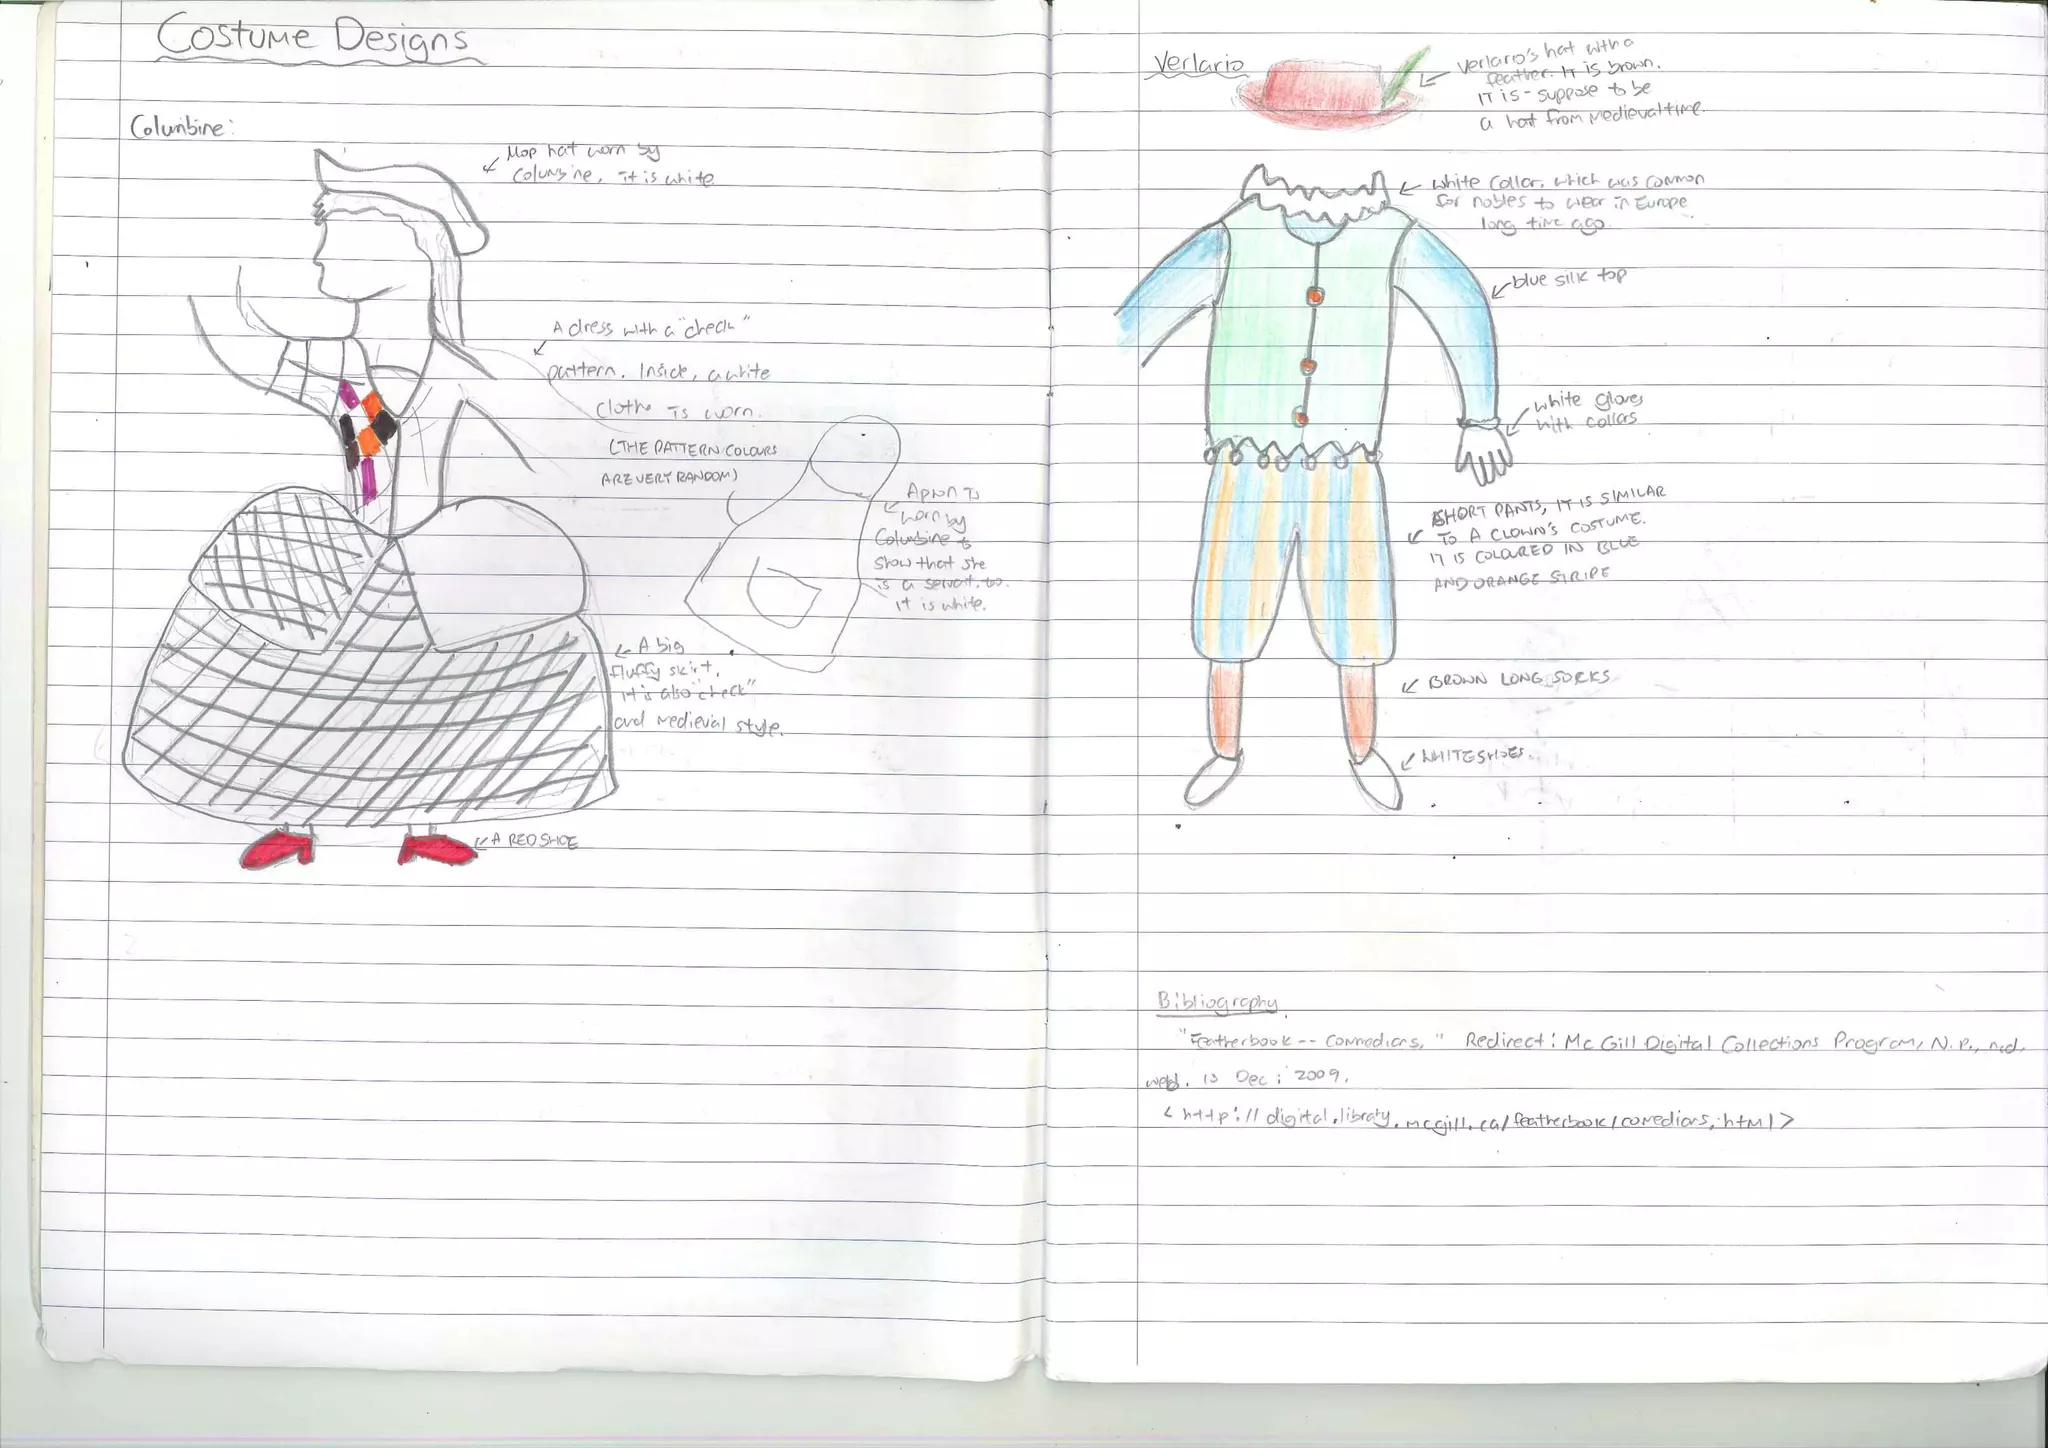 Costume Designs
Columbine:
Mop hat worn by
Columbine. it is white
A dress with a "check"
pattern. Inside, a white
clothe is worn.
(THE PATTERN COLOURS
ARE VERY RANDOM)
Apron is
worn by
Columbine to
show that she
is a servant, too.
it is white.
A big
fluffy skirt,
it is also "check"
and medieval style.
A RED SHOE
Verlario
Verlario's hat with a
feather. IT is brown.
IT is suppose to be
a hat from medieval time.
white collar, which was common
for nobles to wear in Europe
long time ago.
blue silk top
white gloves
with collars
SHORT PANTS, IT IS SIMILAR
TO A CLOWN'S COSTUME.
IT IS COLOURED IN BLUE
AND ORANGE STRIPE
BROWN LONG SOCKS
WHITE SHOES.
Bibliography
"Featherbook -- Comedians." Redirect: Mc Gill Digital Collections Program, N.p., n.d.
web. 13 Dec. 2009.
<http://digital.library.mcgill.ca/featherbook/comedians.html>